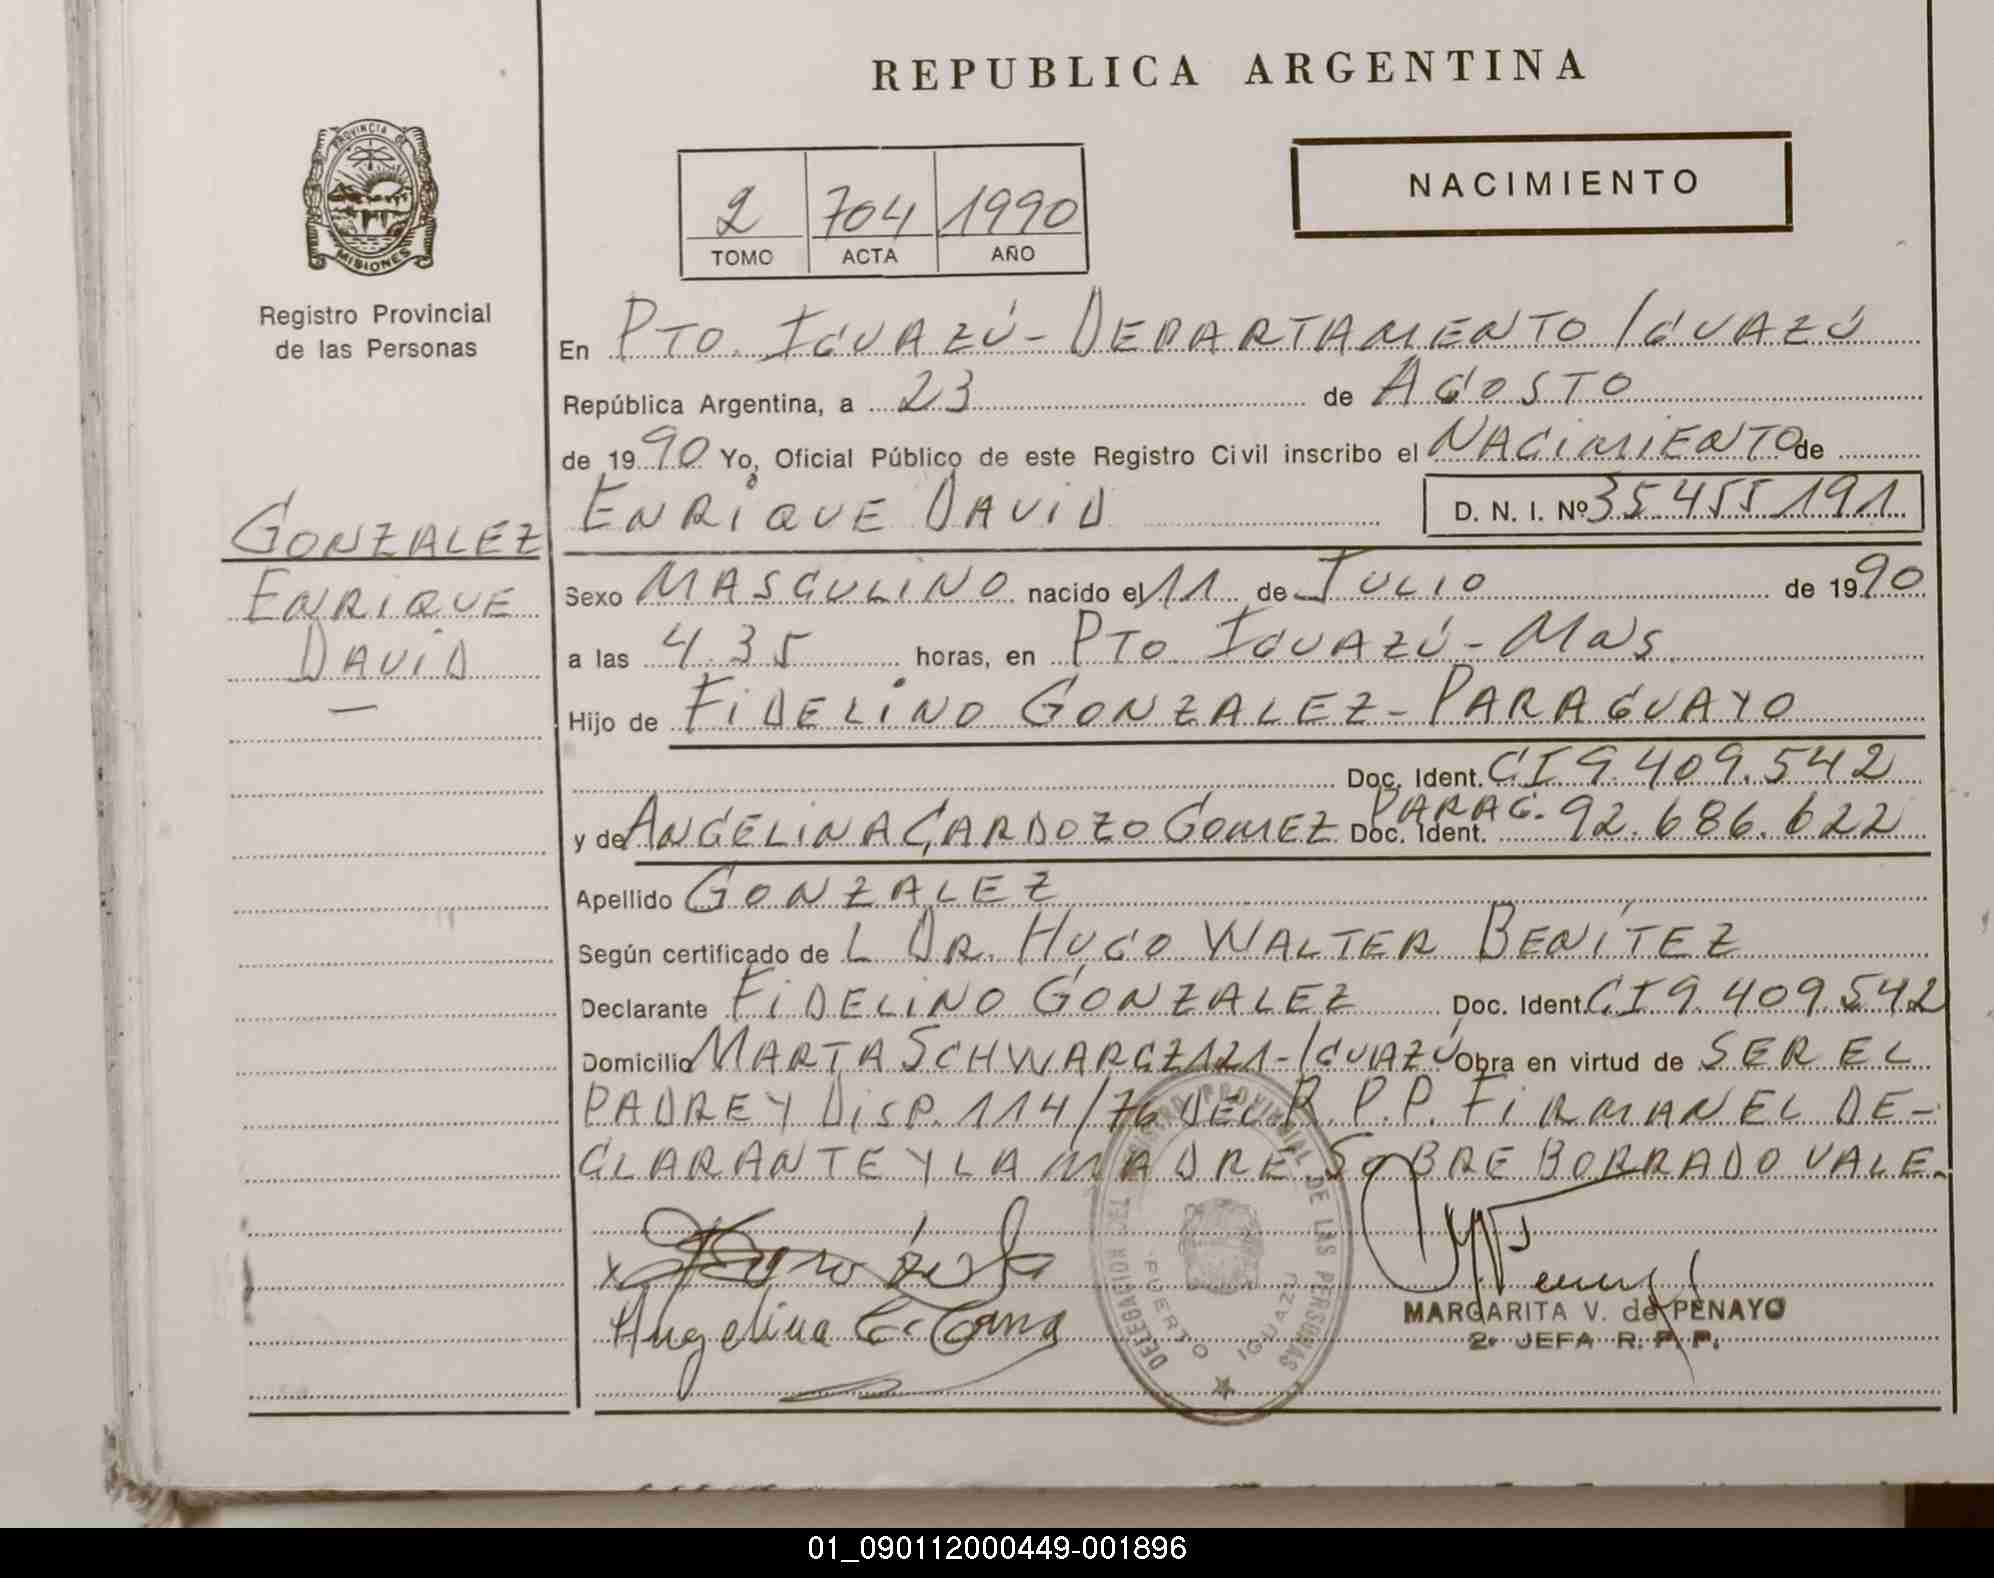 REPUBLICA ARGENTINA
PROVINCIA DE
MISIONES
Registro Provincial
de las Personas
2 704 1990
TOMO ACTA AÑO
NACIMIENTO
En PTO. IGUAZÚ - DEPARTAMENTO IGUAZÚ
República Argentina, a 23 de AGOSTO
de 1990 Yo, Oficial Público de este Registro Civil inscribo el NACIMIENTO de
ENRIQUE DAVID D. N. I. Nº 35.455.191
GONZALEZ
ENRIQUE
DAVID
—
Sexo MASCULINO nacido el 11 de JULIO de 1990
a las 4.35 horas, en PTO IGUAZÚ - MNS
Hijo de FIDELINO GONZALEZ - PARAGUAYO
Doc. Ident. CI 9.409.542
y de ANGELINA CARDOZO GOMEZ PARAG. Doc. Ident. 92.686.622
Apellido GONZALEZ
Según certificado de L DR. HUGO WALTER BENÍTEZ
Declarante FIDELINO GONZALEZ Doc. Ident. CI 9.409.542
Domicilio MARTA SCHWARCZ 121 - IGUAZÚ Obra en virtud de SER EL
PADRE Y DISP. 114/76 DEL R.P.P. FIRMAN EL DE-
CLARANTE Y LA MADRE SOBRE BORRADO VALE.
Angelina C.
REGISTRO PROVINCIAL DE LAS PERSONAS
DELEGACION
PUERTO IGUAZU
MARGARITA V. de PENAYO
2º JEFA R. P. P.
01_090112000449-001896